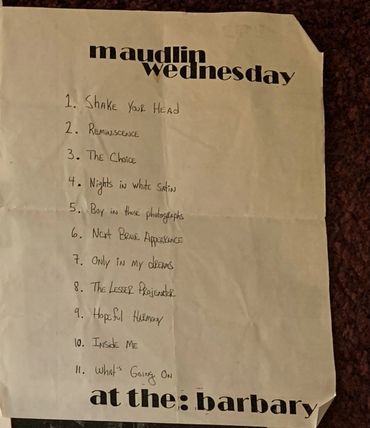 maudlin
wednesday
1. Shake Your Head
2. Reminiscence
3. The Choice
4. Nights in white Satin
5. Boy in those photographs
6. Next Brave Appearance
7. Only in my dreams
8. The Lesser Pretender
9. Hopeful Harmony
10. Inside Me
11. What's Going On
at the: barbary